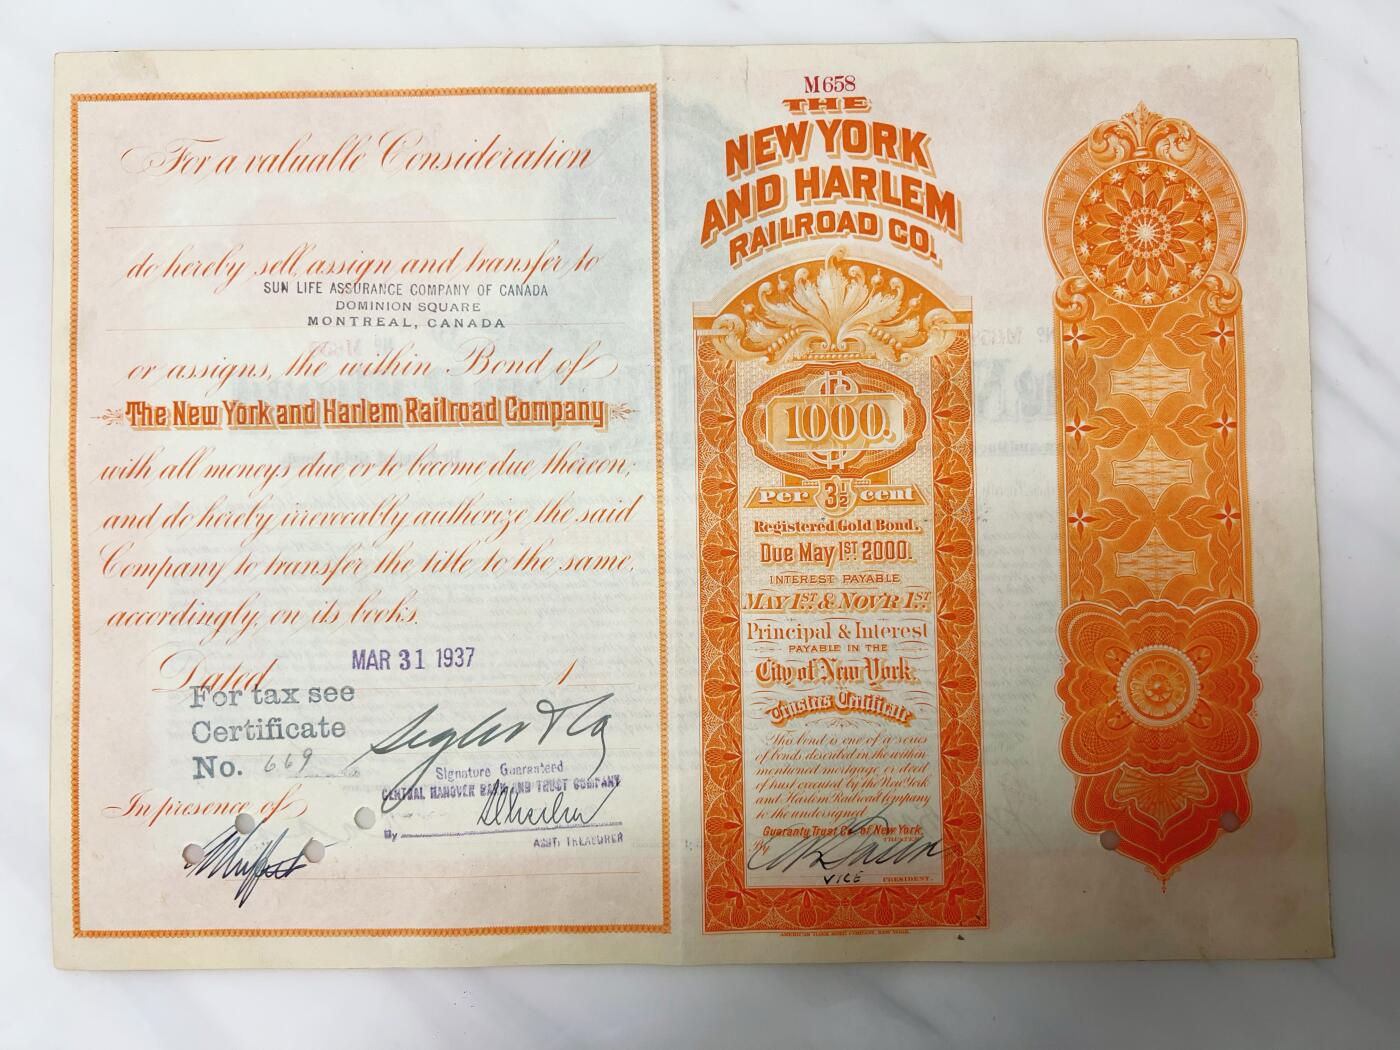 For a valuable Consideration
do hereby sell, assign and transfer to
SUN LIFE ASSURANCE COMPANY OF CANADA
DOMINION SQUARE
MONTREAL, CANADA
or assigns, the within Bond of
The New York and Harlem Railroad Company
with all moneys due or to become due thereon;
and do hereby irrevocably authorize the said
Company to transfer the title to the same,
accordingly, on its books.
Dated MAR 31 1937 1
For tax see
Certificate
No. 669
Signature Guaranteed
CENTRAL HANOVER BANK AND TRUST COMPANY
By
ASST. TREASURER
In presence of
M658
THE
NEW YORK
AND HARLEM
RAILROAD CO.
1000.
Per 3½ cent
Registered Gold Bond.
Due May 1ST 2000.
INTEREST PAYABLE
MAY 1ST & NOV'R 1ST
Principal & Interest
PAYABLE IN THE
City of New York.
Trustees Certificate
This bond is one of a series
of bonds described in the within
mentioned mortgage or deed
of trust executed by the New York
and Harlem Railroad Company
to the undersigned
Guaranty Trust Co. of New York,
TRUSTEE
By
VICE PRESIDENT.
AMERICAN BANK NOTE COMPANY, NEW YORK.